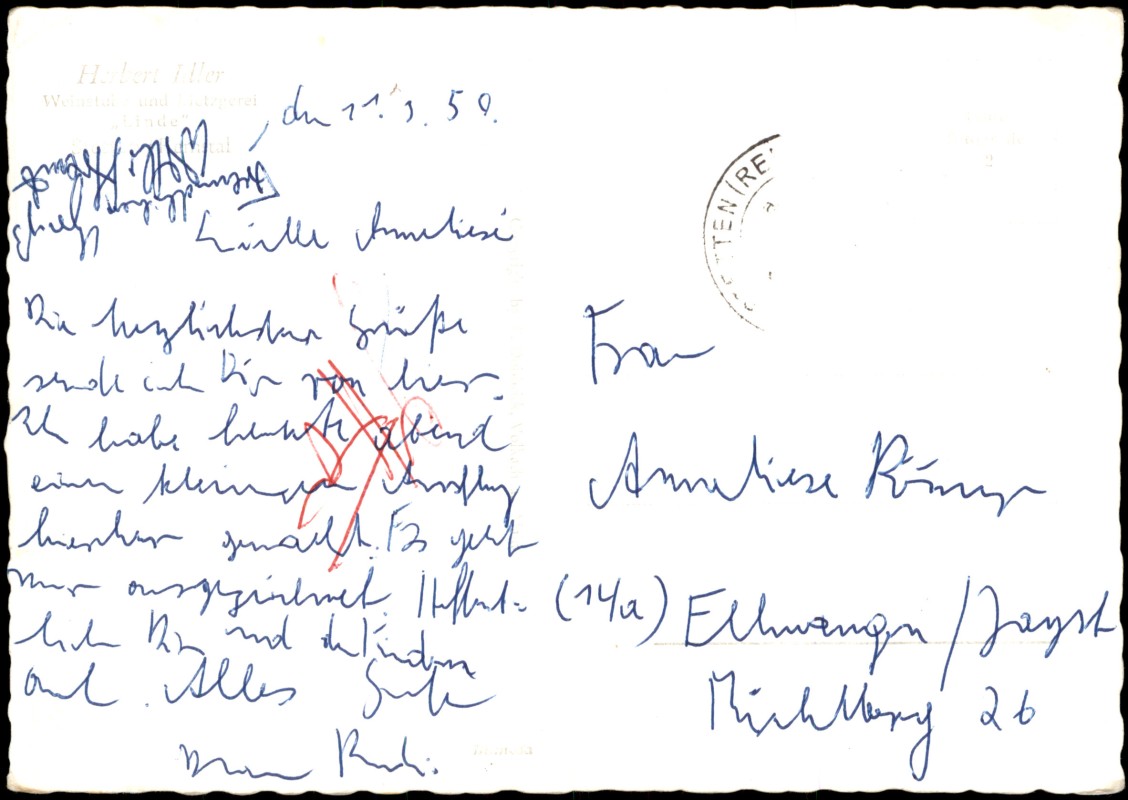 Herbert Idler
Weinstube und Metzgerei
"Linde"
, den 11.3.59.
Liebe Anneliese
Die herzlichsten Grüße
sende ich Dir von hier.
Ich habe heute abend
einen kleinen Ausflug
hierher gemacht. Es geht
mir ausgezeichnet. Hoffent-
lich Dir und den Kindern
auch. Alles Gute
Dein
TTEN (RE
Frau
Anneliese
(14a) Ellwangen / Jagst
26